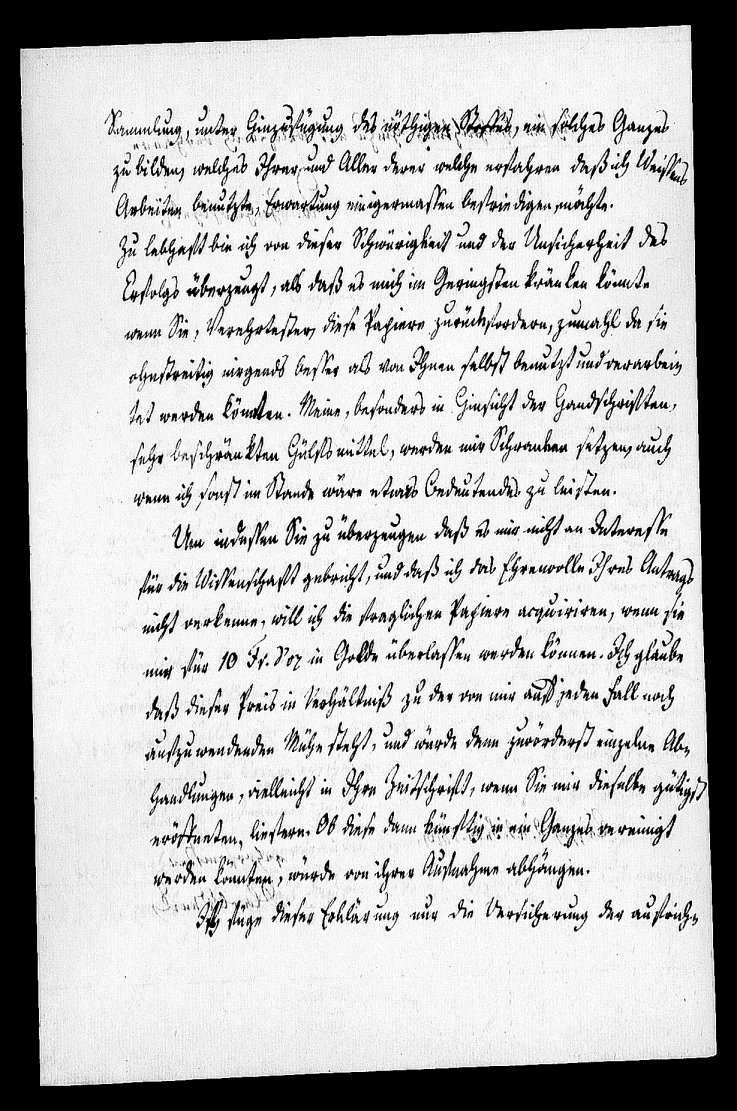 Sammlung, unter Hinzufügung des nöthigen Stoffes, ein solches Ganzes
zu bilden, welches Ihrer, und Aller derer welche erfahren daß ich Weissens
Arbeiten benutzte, Erwartung einigermassen befriedigen möchte.
Zu lebhaft bin ich von dieser Schwürigkeit und der Unsicherheit des
Erfolgs überzeugt, als daß es mich im Geringsten kränken könnte
wenn Sie, Verehrtester, diese Papiere zurückfordern, zumahl da sie
ohnstreitig nirgends besser als von Ihnen selbst benutzt und verarbei-
tet werden könnten. Meine, besonders in Hinsicht der Handschriften,
sehr beschränkten Hülfsmittel, werden mir Schranken setzen, auch
wenn ich sonst im Stande wäre etwas Bedeutendes zu leisten.
Um indessen Sie zu überzeugen daß es mir nicht an Interesse
für die Wissenschaft gebricht, und daß ich das Ehrenvolle Ihres Antrags
nicht verkenne, will ich die fraglichen Papiere acquiriren, wenn sie
mir für 10 Fr. d'or in Golde überlassen werden können. Ich glaube
daß dieser Preis in Verhältniß zu der von mir auf jeden Fall noch
aufzuwendenden Mühe steht, und würde dann zuvörderst einzelne Ab-
handlungen, vielleicht in Ihre Zeitschrift, wenn Sie mir dieselbe gütigst
eröffneten, liefern. Ob diese dann künftig in ein Ganzes vereinigt
werden könnten, würde von ihrer Aufnahme abhängen.
Ich füge dieser Erklärung nur die Versicherung der aufrich-